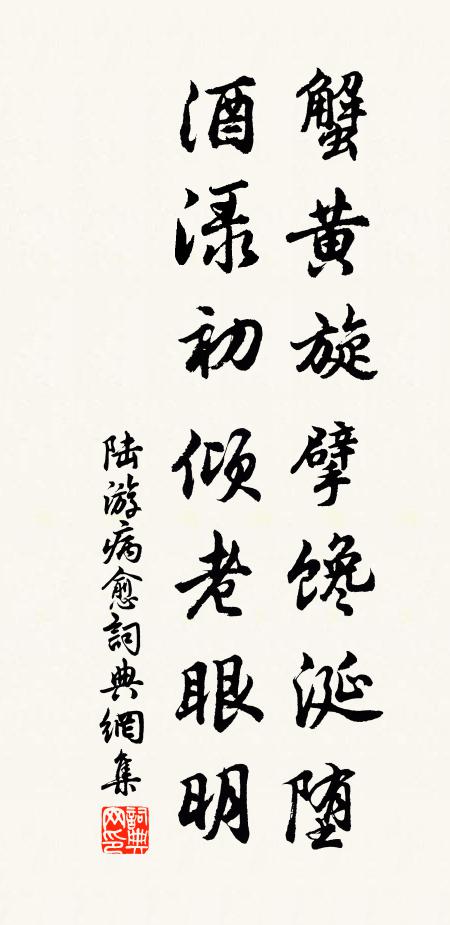 蟹黄旋擘馋涎堕
酒渌初倾老眼明
陆游病愈詞典網集
詞典网印